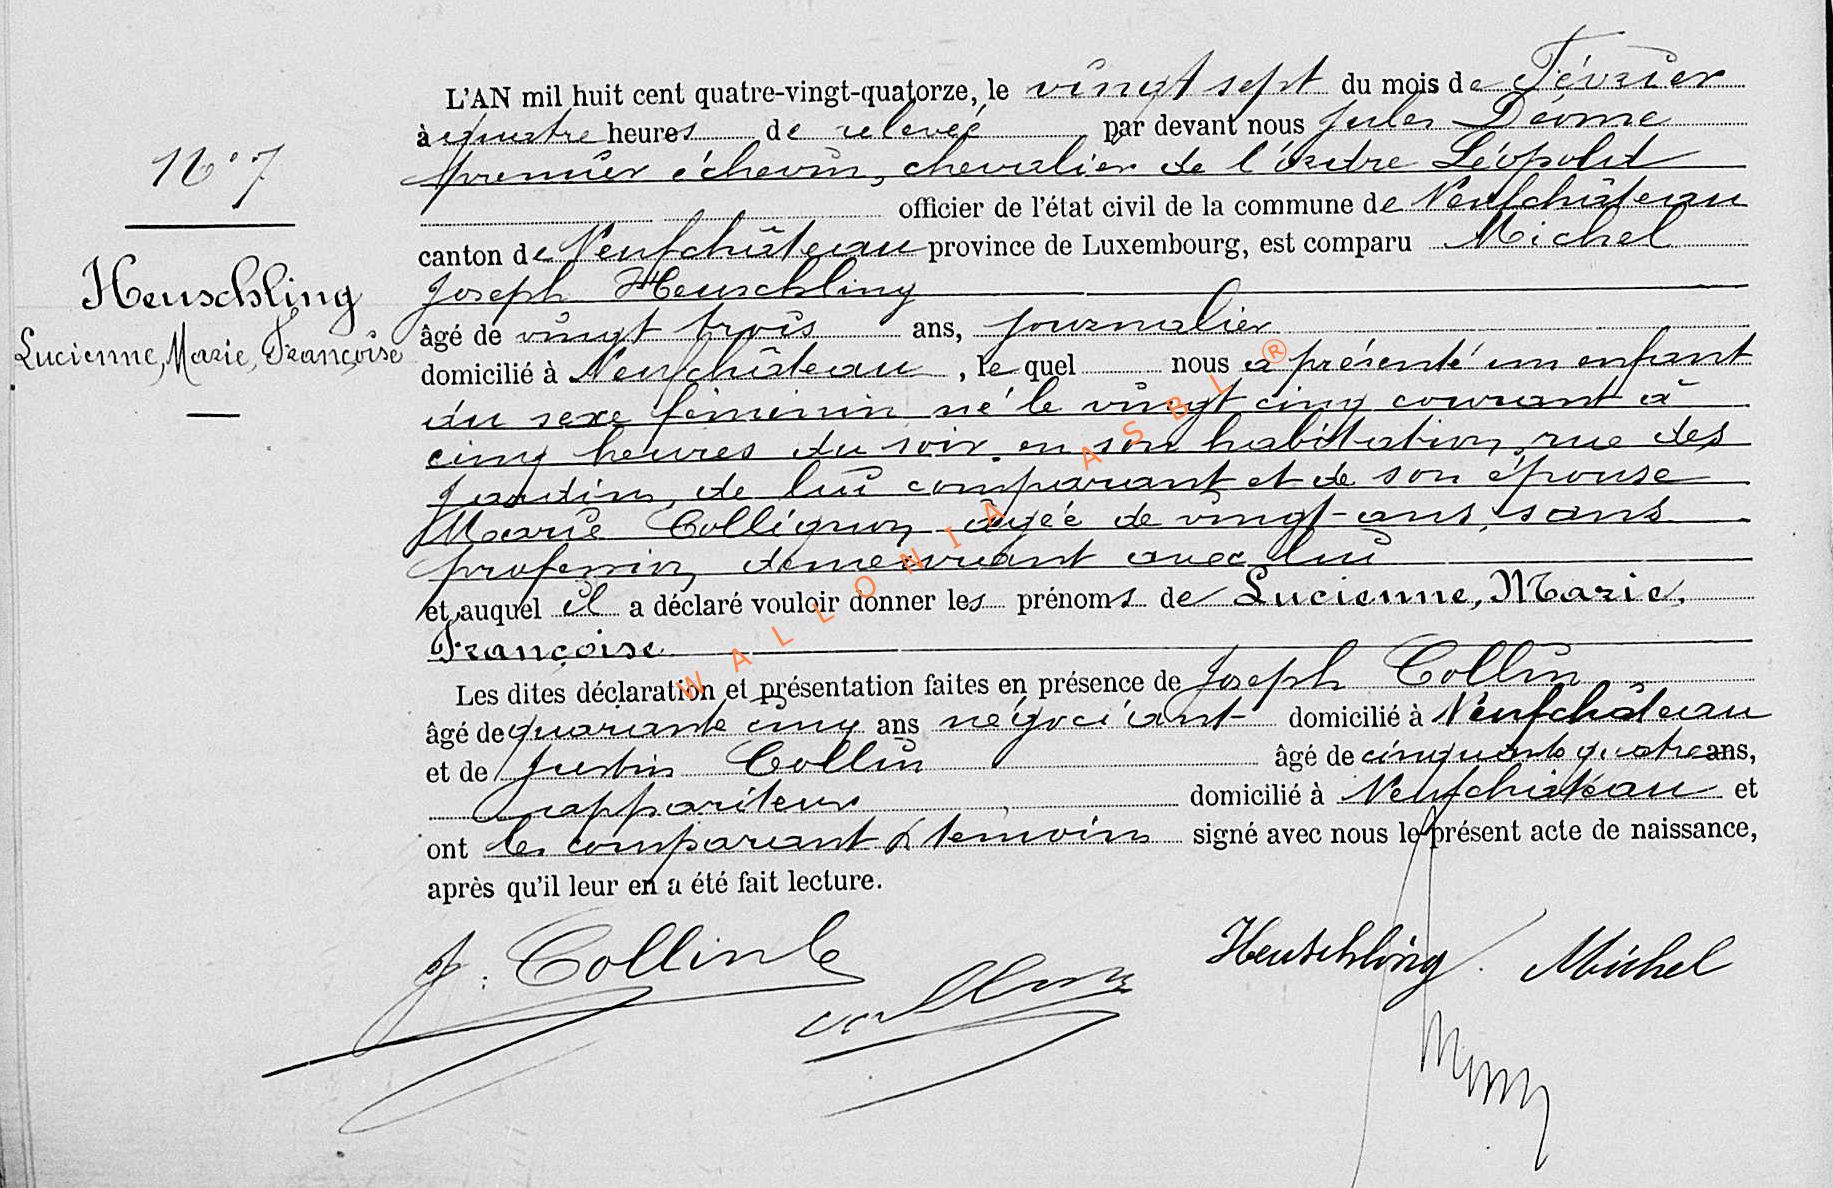 L'AN mil huit cent quatre-vingt-quatorze, le vingt sept du mois de Février
à quatre heures de relevée par devant nous Jules Déome
premier échevin, chevalier de l'ordre Léopold
officier de l'état civil de la commune de Neufchâteau
canton de Neufchâteau province de Luxembourg, est comparu Michel
Joseph Heuschling
âgé de vingt trois ans, journalier
domicilié à Neufchâteau, le quel nous a présenté un enfant
du sexe féminin né le vingt cinq courant à
cinq heures du soir en son habitation, rue des
Jardins, de lui comparant et de son épouse
Marie Collignon, agée de vingt-ans, sans
profession, demeurant avec lui
et auquel il a déclaré vouloir donner les prénoms de Lucienne, Marie,
Françoise.
Les dites déclaration et présentation faites en présence de Joseph Collin
âgé de quarante cinq ans négociant domicilié à Neufchâteau
et de Justin Collin âgé de cinquante quatre ans,
appariteur domicilié à Neufchâteau et
ont les comparant & témoins signé avec nous le présent acte de naissance,
après qu'il leur en a été fait lecture.
N° 7
Heuschling
Lucienne, Marie, Françoise
J. Collin
Heuschling Michel
WALLONIA ASBL ®